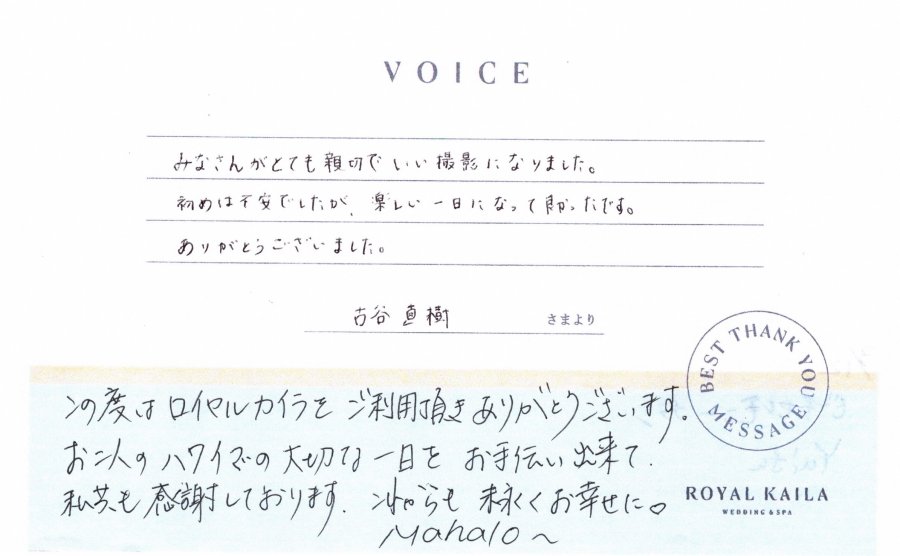 VOICE
みなさんがとても親切でいい撮影になりました。
初めは不安でしたが、楽しい一日になって良かったです。
ありがとうございました。
古谷 直樹 さまより
BEST THANK YOU MESSAGE
この度はロイヤルカイラをご利用頂きありがとうございます。
お二人のハワイでの大切な一日をお手伝い出来て、
私共も感謝しております。これからも末永くお幸せに。
Mahalo~
ROYAL KAILA
WEDDING & SPA